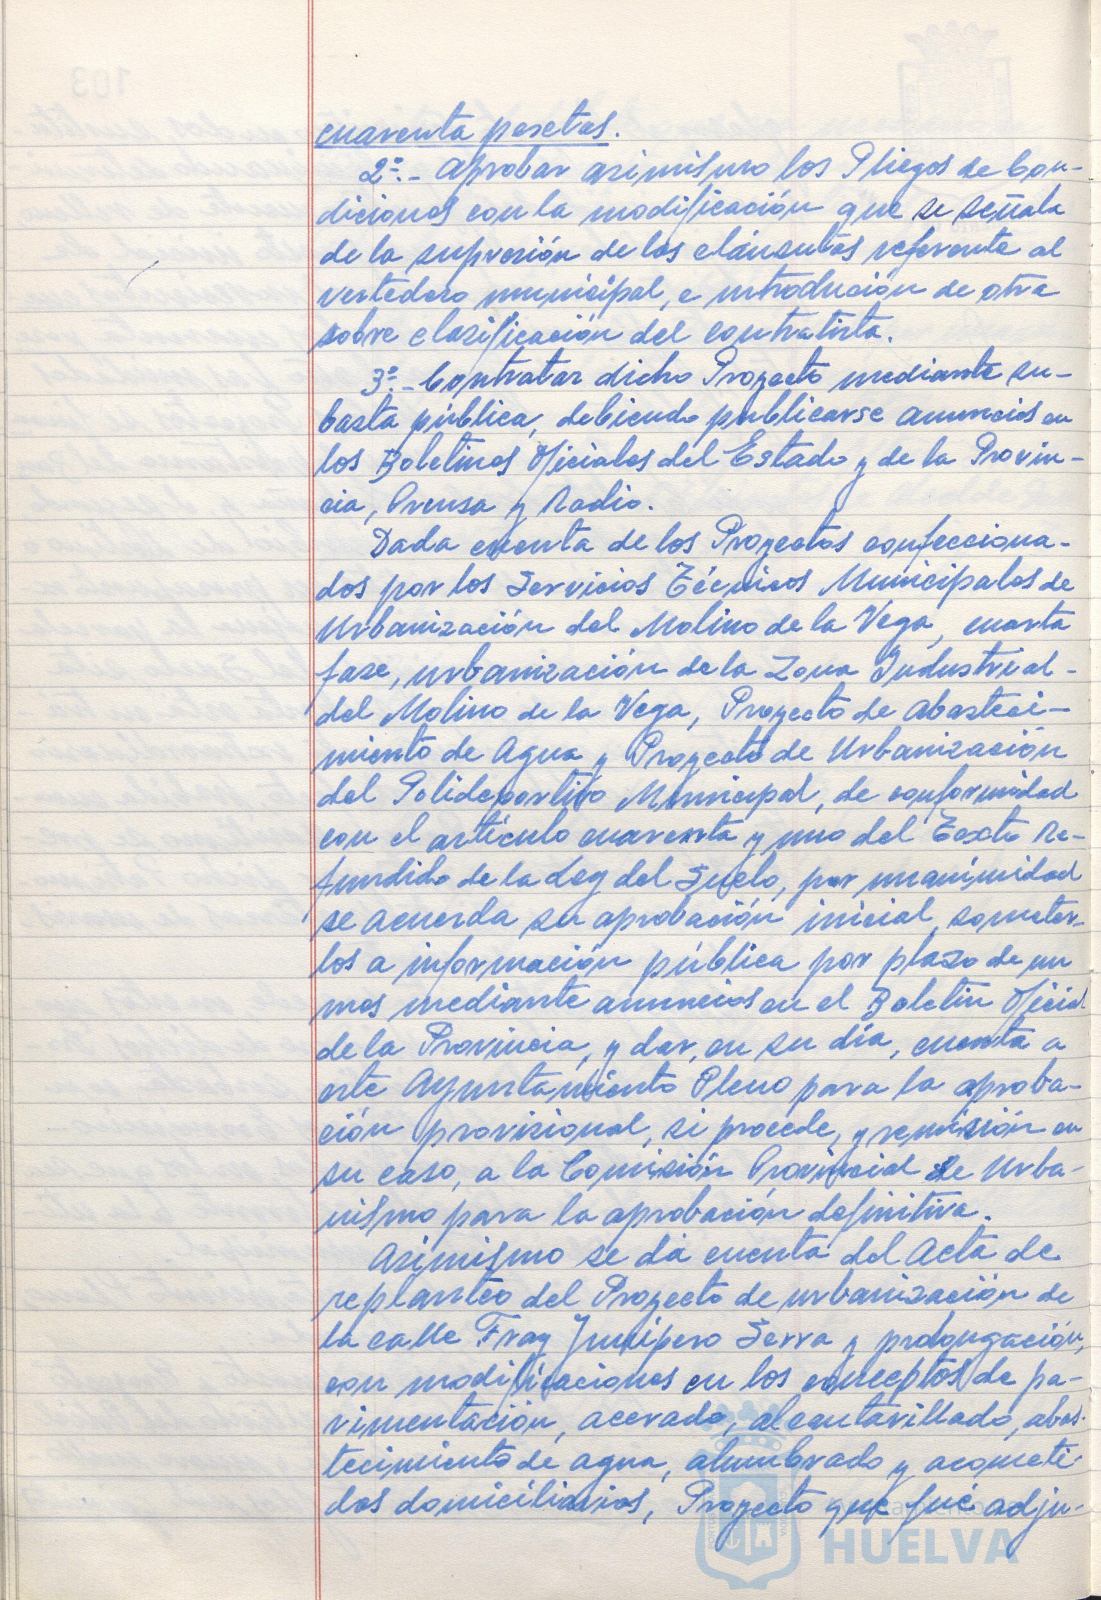 cuarenta pesetas.
2º.- Aprobar asimismo los Pliegos de Con-
diciones con la modificación que se señala
de la supresión de las cláusulas referente al
vertedero municipal, e introdución de otra
sobre clasificación del contratista.
3º.- Contratar dicho Proyecto mediante su-
basta pública, debiendo publicarse anuncios en
los Boletines Oficiales del Estado y de la Provin-
cia, Prensa y Radio.
Dada cuenta de los Proyectos confecciona-
dos por los Servicios Técnicos Municipales de
Urbanización del Molino de la Vega, cuarta
fase, urbanización de la Zona Industrial-
del Molino de la Vega, Proyecto de Abasteci-
miento de Agua y Proyecto de Urbanización
del Polideportivo Municipal, de conformidad
con el artículo cuarenta y uno del Texto Re-
fundido de la Ley del Suelo, por unanimidad
se acuerda su aprobación inicial, someter-
los a información pública por plazo de un
mes mediante anuncios en el Boletín Oficial
de la Provincia, y dar, en su día, cuenta a
este Ayuntamiento Pleno para la aproba-
ción provisional, si procede, y remisión en
su caso, a la Comisión Provincial de Urba-
nismo para la aprobación definitiva.
Asimismo se da cuenta del Acta de
replanteo del Proyecto de urbanización de
la calle Fray Junípero Serra y prolongación,
con modificaciones en los conceptos de pa-
vimentación, acerado, alcantarillado, abas-
tecimiento de agua, alumbrado y acometi-
dos domiciliarios, Proyecto que fué adju-
HUELVA